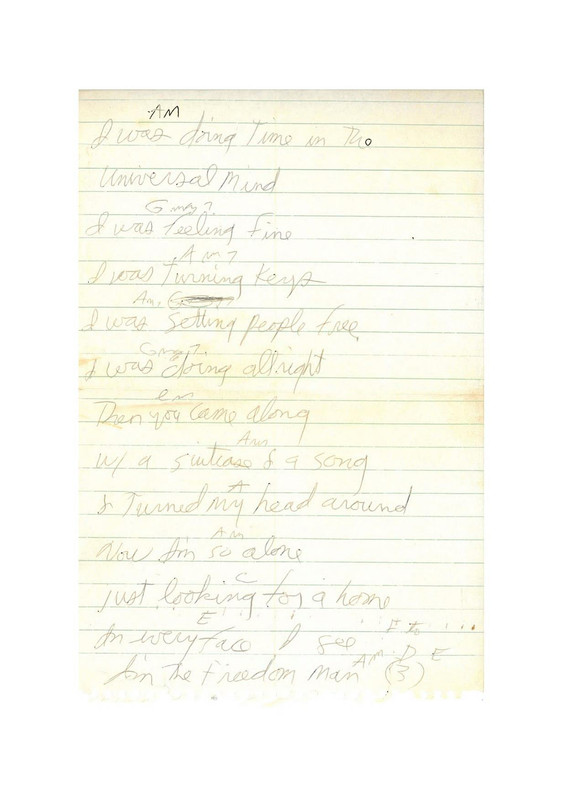 AM
I was doing Time in The
Universal Mind
Gmaj7
I was feeling fine
Am7
I was Turning Keys
Am
I was setting people free
Gmaj7
I was doing allright
em
Then you came along
Am
w/ a suitcase & a song
A
& Turned my head around
Am
Now I'm so alone
just looking for a home
C
In every face I see
E
I'm the Freedom Man
Am D E
(3)